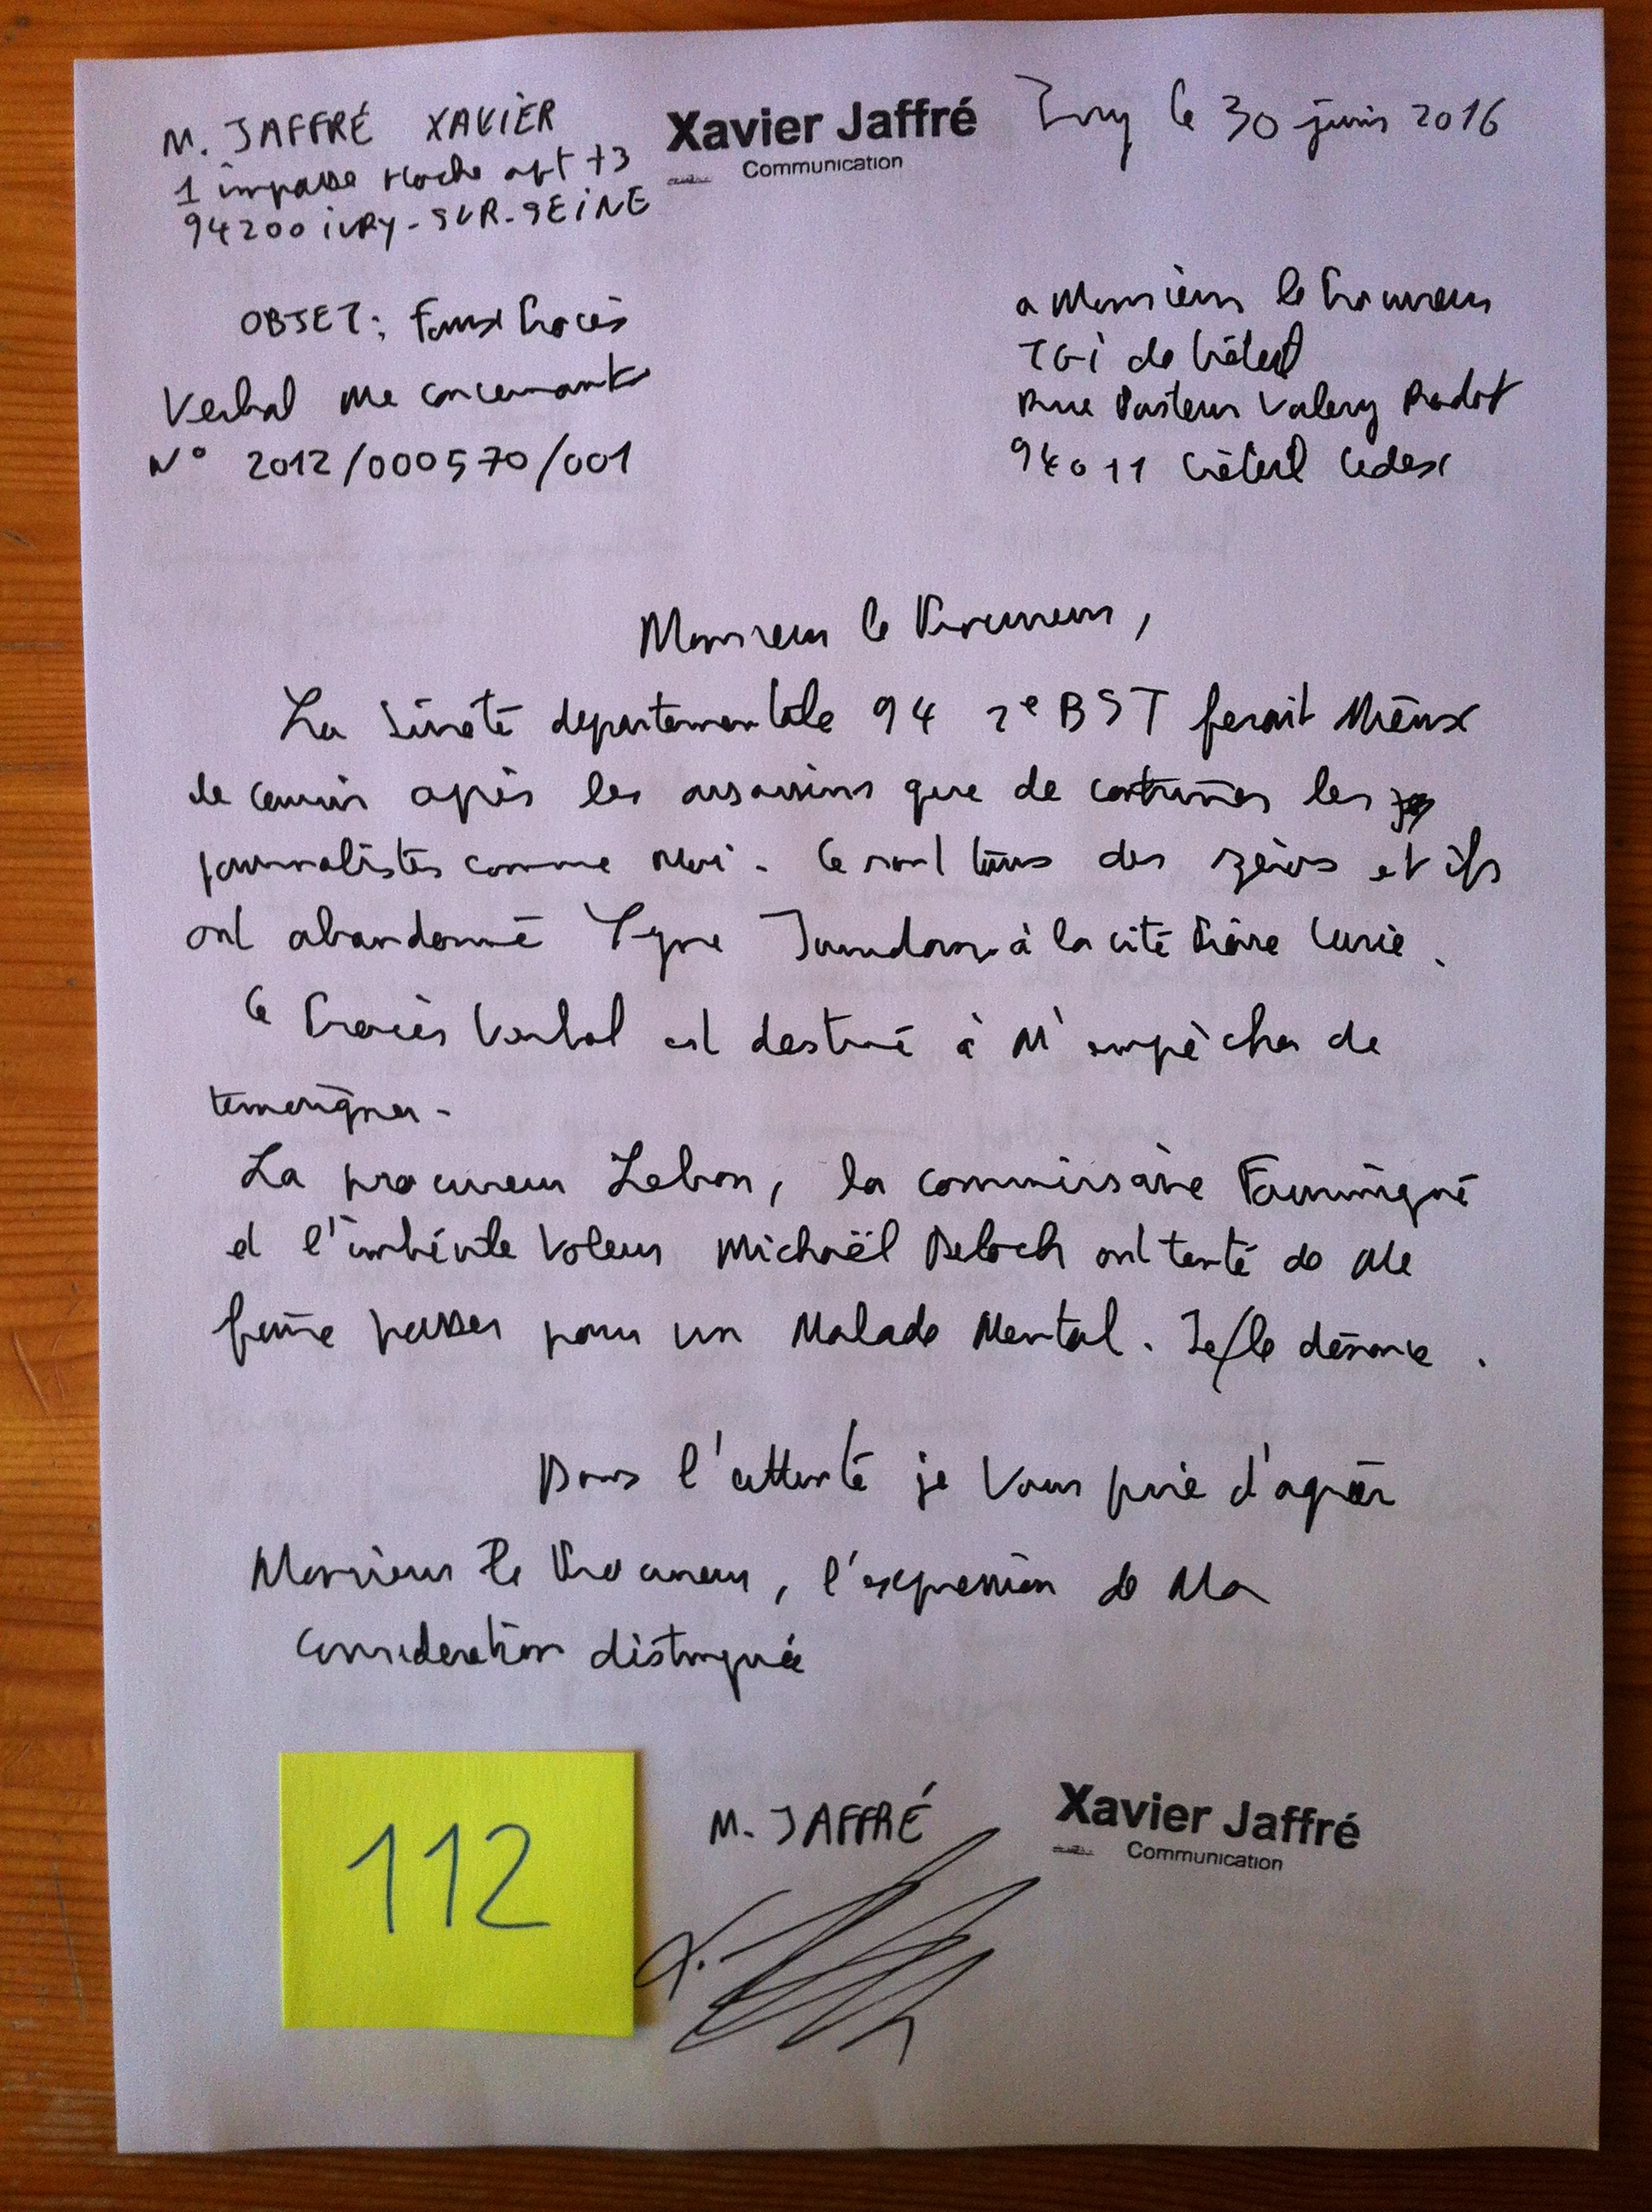 M. JAFFRÉ XAVIER
1 impasse Hoche apt 73
94200 iVRY-SUR-SEiNE
Xavier Jaffré
Communication
Ivry le 30 juin 2016
OBJET: Faux Procès
Verbal me concernant
N° 2012/000570/001
a Monsieur le Procureur
TGi de Créteil
Rue Pasteur Valery Radot
94011 Créteil Cedex
Monsieur le Procureur,
La Sûreté departementale 94 2e BST ferait mieux
de courir après les assassins que de les
journalistes comme moi. Ce sont tous des zéros et ils
ont abandonné à la cité Pierre Curie.
Ce Procès Verbal est destiné à m'empêcher de
temoigner-
La procureur Lebon, la commissaire
et l'imbécile voleur Michaël Deloch ont tenté de me
faire passer pour un malade mental. Je le dénonce.
Dans l'attente je vous prie d'agréer
Monsieur le Procureur, l'expression de ma
consideration distinguée
112
M. JAFFRÉ
Xavier Jaffré
Communication